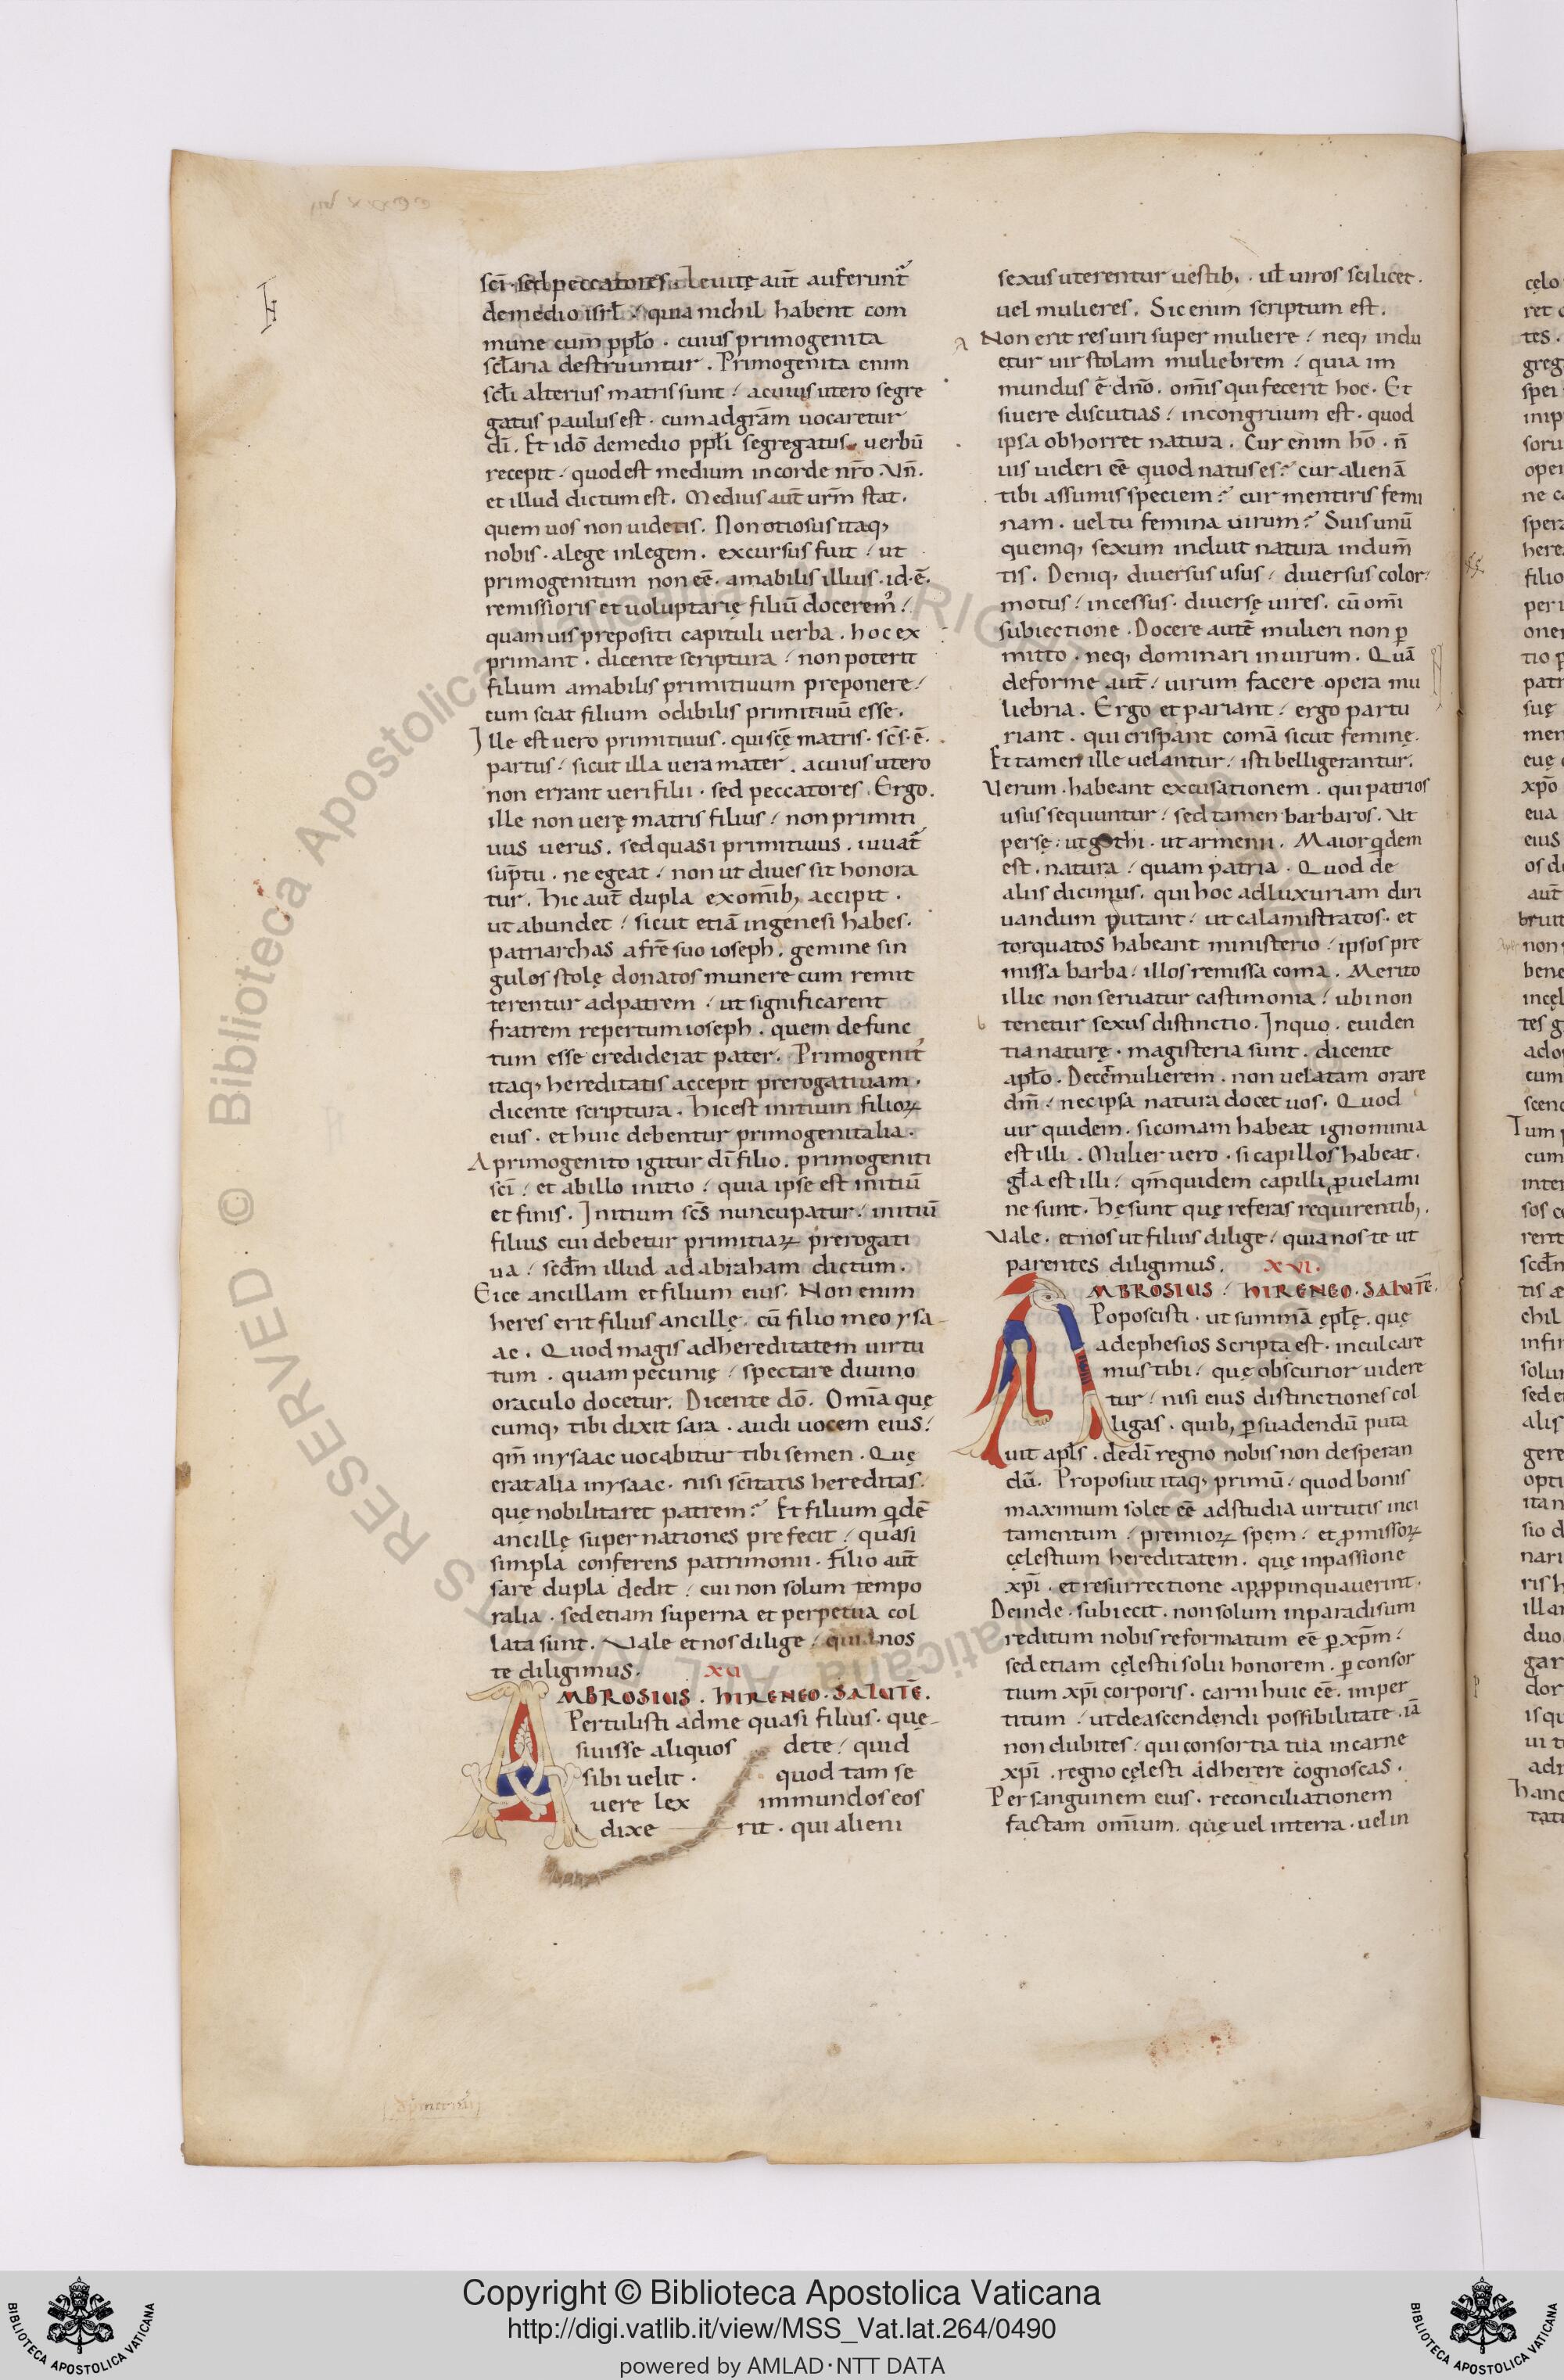 scī· sed peccatores. Leuitę aūt auferunt̃
de medio isrł / quia nichil habent com
mune cum ppło · cuius primogenita
scłaria destruuntur . Primogenita enim
scłi alterius matris sunt / a cuius utero segre
gatus paulus est · cum ad gr̄am uocaretur
dī. Et idō de medio ppłi segregatus . uerbū
recepit / quod est medium in corde nr̄o . Vn̄.
et illud dictum est. Medius aūt urm̄ stat .
quem uos non uidetis. Non otiosus itaq,
nobis · a lege in legem . excursus fuit / ut
primogenitum non eē . amabilis illius . id·ē.
remissioris et uoluptarię filiū docerem᾽ /
quamuis prepositi capituli uerba . hoc ex
primant . dicente scriptura / non poterit
filium amabilis primitiuum preponere /
cum sciat filium odibilis primitiuū esse .
Ille est uero primitiuus . qui scę̄ matris . scs̄·ē·
partus / sicut illa uera mater . a cuius utero
non errant ueri filii . sed peccatores . Ergo
ille non uerę matris filius / non primiti
uus uerus . sed quasi primitiuus . iuuat̃
sūptu . ne egeat / non ut diues sit honora
tur . Hic aūt dupla ex omīb, accipit .
ut abundet / sicut etiā in genesi habes .
patriarchas a frē suo ioseph . gemine sin
gulos stolę donatos munere cum remit
terentur ad patrem / ut significarent
fratrem repertum ioseph . quem defunc
tum esse crediderat pater . Primogenit᾽
itaq, hereditatis accepit prerogatiuam .
dicente scriptura . Hic est initium filioꝝ
eius . et huic debentur primogenitalia .
A primogenito igitur dī filio . primogeniti
scī / et ab illo initio / quia ipse est initiū
et finis . Initium scs̄ nuncupatur / initiū
filius cui debetur primitiaꝝ prerogati
ua / scd̄m illud ad abraham dictum .
Eice ancillam et filium eius . Non enim
heres erit filius ancillę . cū filio meo ysa
ac . Quod magis ad hereditatem uirtu
tum . quam pecunię / spectare diuino
oraculo docetur . Dicente dō . Omīa quę
cumq, tibi dixit sara . audi uocem eius /
qm̄ in ysaac uocabitur tibi semen . Quę
erat alia in ysaac . nisi scītatis hereditas .
quę nobilitaret patrem ? Et filium qdē
ancillę super nationes prefecit / quasi
simpla conferens patrimonii . filio aūt
sare dupla dedit / cui non solum tempo
ralia . sed etiam superna et perpetua col
lata sunt . Vale et nos dilige / quia nos
te diligimus. XV
AMBROSIUS . HIRENEO . SALUTĒ .
Pertulisti ad me quasi filius . quę
siuisse aliquos de te / quid
sibi uelit . quod tam se
uere lex immundos eos
dixe rit . qui alieni
sexus uterentur uestib, . uł uiros scilicet .
uel mulieres . Sic enim scriptum est .
Non erit res uiri super muliere / neq, indu
etur uir stolam muliebrem / quia im
mundus ē dnō . omīs qui fecerit hoc . Et
si uere discutias / incongruum est . quod
ipsa obhorret natura . Cur enim hō . n̄
uis uideri eē quod natus es ? cur alienā
tibi assumis speciem ? cur mentiris femi
nam . uel tu femina uirum ? Suis unū
quemq, sexum induit natura indum̄
tis . Deniq, diuersus usus / diuersus color /
motus / incessus . diuersę uires . cū omī
subiectione . Docere autē mulieri non ꝑ
mitto . neq, dominari in uirum . Quā
deforme aūt / uirum facere opera mu
liebria . Ergo et pariant / ergo partu
riant . qui crispant comā sicut feminę .
Et tamen ille uelantur / isti belligerantur .
Verum . habeant excusationem . qui patrios
usus sequuntur / sed tamen barbaros . Vt
persę . ut gothi . ut armenii . Maior qdem
est . natura / quam patria . Quod de
aliis dicimus . qui hoc ad luxuriam diri
uandum putant / ut calamistratos . et
torquatos habeant ministerio / ipsos pre
missa barba / illos remissa coma . Merito
illic non seruatur castimonia / ubi non
tenetur sexus distinctio . In quo . euiden
tia naturę . magisteria sunt . dicente
apło . Decet mulierem . non uelatam orare
dm̄ / nec ipsa natura docet uos . Quod
uir quidem . si comam habeat ignominia
est illi . Mulier uero . si capillos habeat .
gła est illi / qm̄ quidem capilli ꝓ uelami
ne sunt . Hę sunt quę referas requirentib, .
Vale . et nos ut filius dilige / quia nos te ut
parentes diligimus . XVI .
AMBROSIUS / HIRENEO . SALUTĒ .
Poposcisti . ut summā epłę . quę
ad ephesios scripta est . inculcare
mus tibi / quę obscurior uidere
tur / nisi eius distinctiones col
ligas . quib, ꝑsuadendū puta
uit apłs . de dī regno nobis non desperan
dū . Proposuit itaq, primū / quod bonis
maximum solet eē ad studia uirtutis inci
tamentum / premioꝝ spem / et ꝓmissoꝝ
cęlestium hereditatem . quę in passione
xpī . et resurrectione appropinquauerint .
Deinde . subiecit . non solum in paradisum
reditum nobis reformatum eē ꝑ xpm̄ /
sed etiam cęlestii solii honorem . ꝑ consor
tium xpī corporis . carni huic eē . imper
titum / ut de ascendendi possibilitate . iā
non dubites / qui consortia tua in carne
xpī . regno cęlesti adherere cognoscas .
Per sanguinem eius . reconciliationem
factam omīum . quę uel in terra . uel in
Copyright © Biblioteca Apostolica Vaticana
http://digi.vatlib.it/view/MSS_Vat.lat.264/0490
powered by AMLAD·NTT DATA